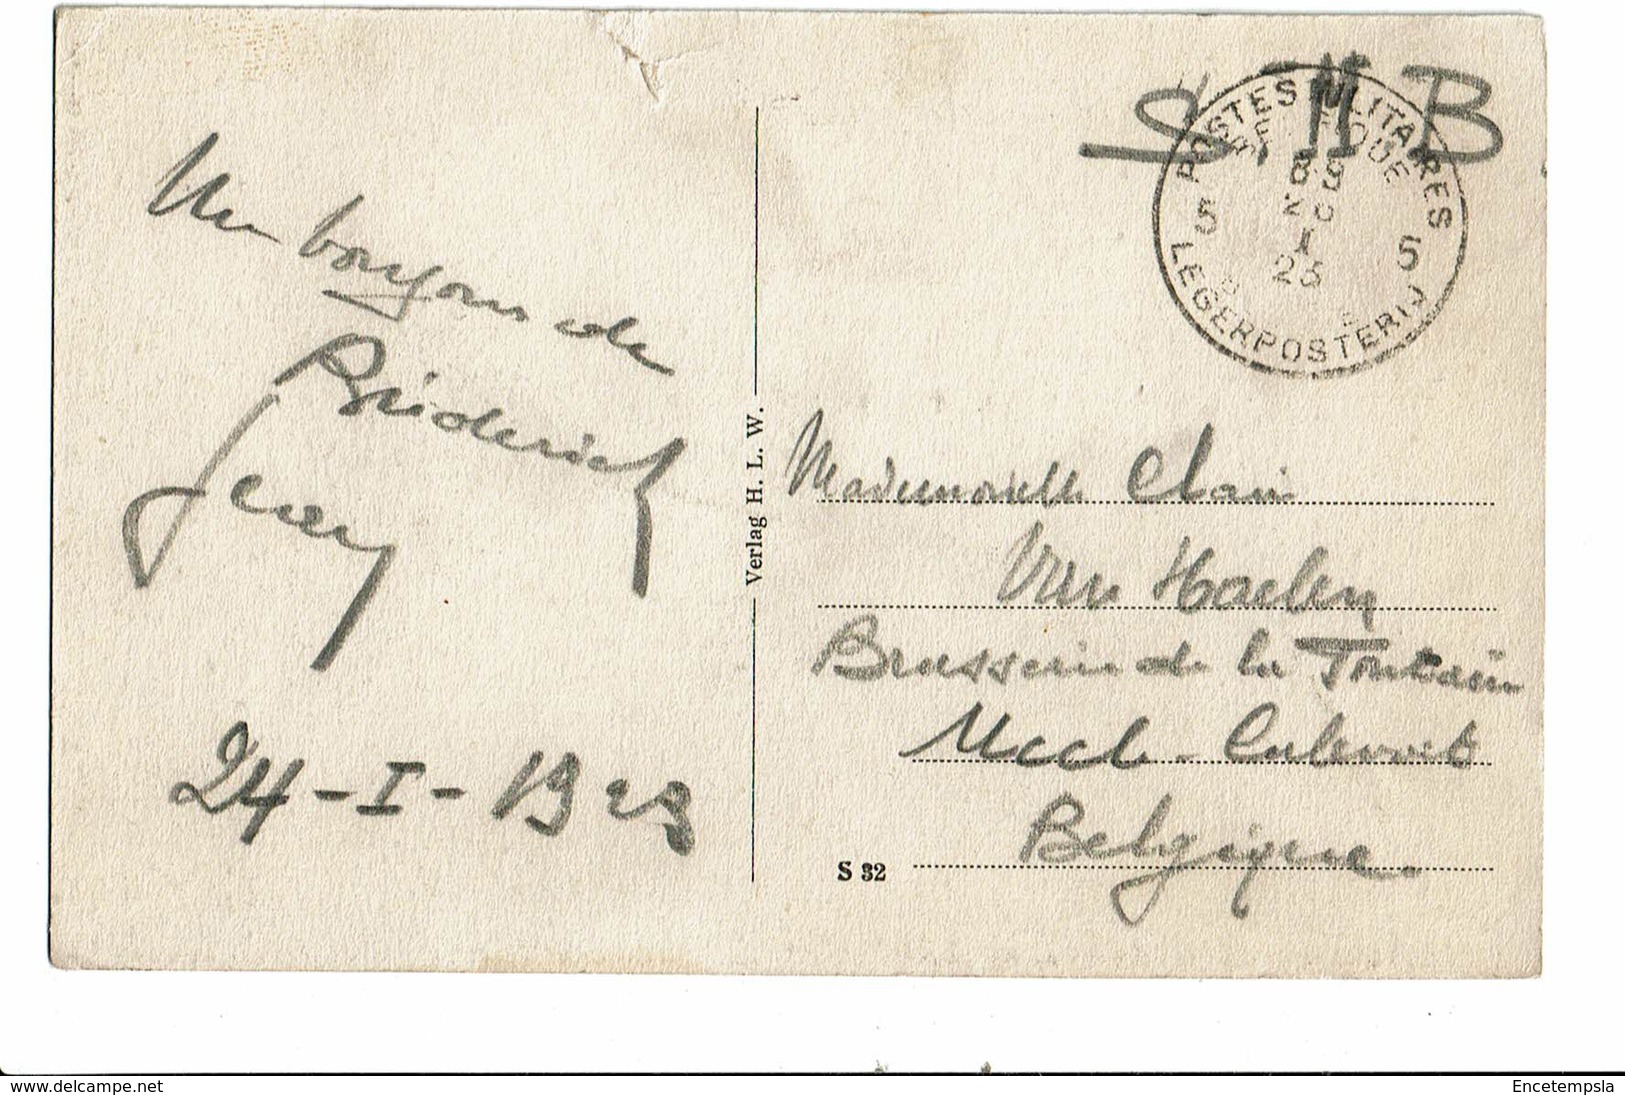 S.M.B
POSTES MILITAIRES
BELGIQUE
5 5
I
23
LEGERPOSTERIJ
Un bonjour de
24-I-1923
Verlag H. L. W.
Mademoiselle Clair
Van Haelen
Brasserie de la Fontaine
Uccle-Calevoet
Belgique.
S 32
www.delcampe.net
Encetempsla